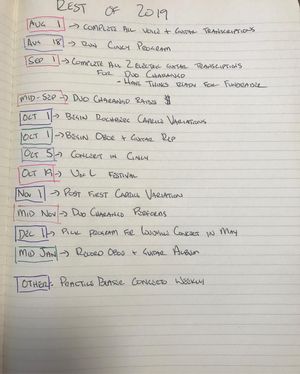 REST OF 2019
AUG 1 → COMPLETE ALL VOICE + GUITAR TRANSCRIPTIONS
AUG 18 → RUN CINCY PROGRAM
SEP 1 → COMPLETE ALL 2 ELECTRIC GUITAR TRANSCRIPTIONS
FOR DUO CHARANGO
- HAVE THINGS READY FOR FUNDRAISER
MID-SEP → DUO CHARANGO RAISES $
OCT 1 → BEGIN ROCHBERG CAPRICE VARIATIONS
OCT 1 → BEGIN OBOE + GUITAR REP
OCT 5 → CONCERT IN CINCY
OCT 19 → U OF L FESTIVAL
NOV 1 → POST FIRST CAPRICE VARIATION
MID NOV → DUO CHARANGO PERFORMS
DEC 1 → PICK PROGRAM FOR CONCERT IN MAY
MID JAN → RECORD OBOE + GUITAR ALBUM
OTHER - PRACTICE CONCERTO WEEKLY